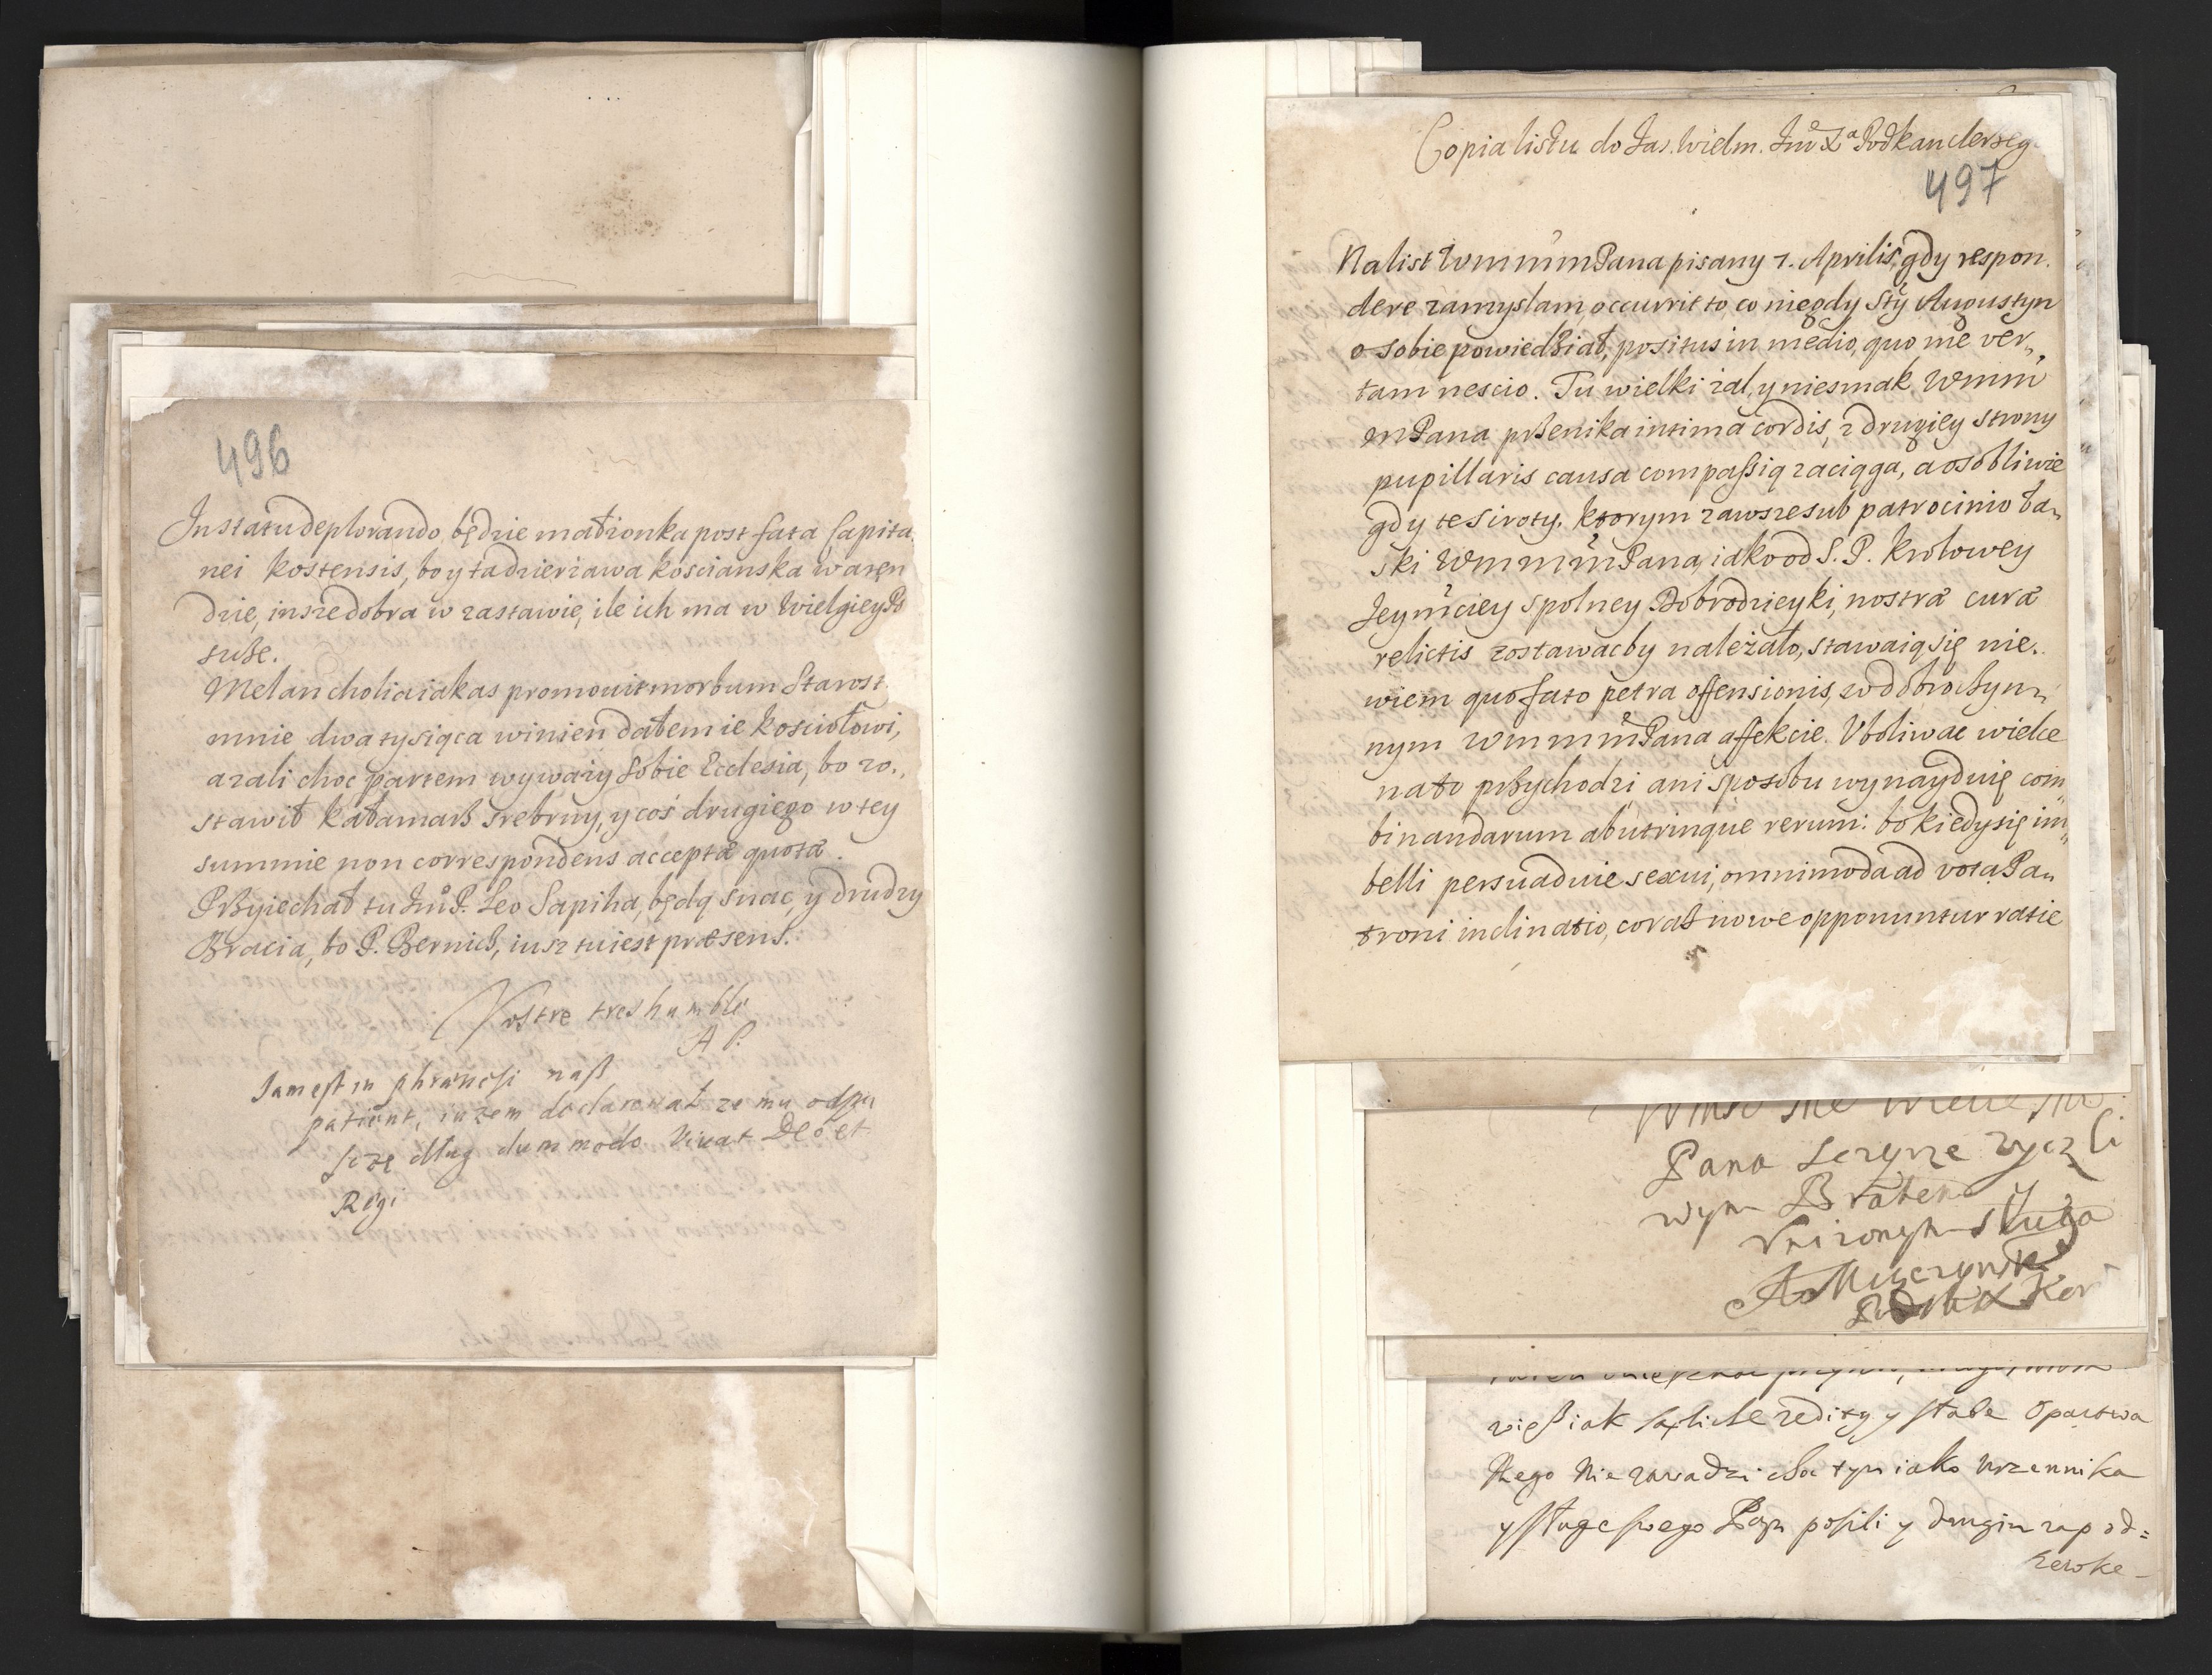 496
In statu deplorando będzie małżonka post fata Capita
nei kostensis, bo y ta dzierżawa kościanska w aręn
dzie, insze dobra w zastawie, ile ich ma w Wielgiey Po
lusze.
Melancholia iakas promouit morbum Starost.
mnie dwa tysiąca winien dałem ie kosciołowi,
azali choc partem wyważy sobie Ecclesia, bo zo.,
stawił kałamarz srebrny, y coś drugiego w tey
summie non correspondens accepta quota.
Przyiechał tu Jm̃ P. Leo Sapiha, będą snac, y drudzy
Bracia, bo P. Bernich, iusz tu iest præsens.
Vostre tres humble
A P.
Jam est in phrænesi nasz
patient, iużem declarował ze mu odpu
szczę dług dummodo vivat Deo et
Regi
Copia listu do Jas. Wielm. Jm̃ Xª Podkanclerzeg
497
Na list Wm mm Pana pisany 7. Aprilis, gdy respon.
dere zamyslam, occurrit to co niegdy Sty Augustyn
o sobie powiedział, positus in medio, quo me ver,,
tam nescio. Tu wielki żal, y niesmak Wmm
m Pana przenika intima cordis, z drugiey strony
pupillaris causa compassią zaciąga, a osobliwie
gdy te siroty, ktorym zawsze sub patrocinio ła,,
ski Wm mm Pana, iako od S. P. Krolowey
Jeymciey spolney Dobrodzieyki, nostra cura
relictis zostawac by należało, stawaią się nie.
wiem quo fato petra offensionis, w dobroczyn,,
nym Wm mm Pana affekcie. Vboliwac wielce
na to przychodzi ani sposobu wynayduię com,,
binandarum ab utrinque rerum: bo kiedy się im,,
belli persuaduie sexui, omnimoda ad vota Pa,,
troni inclinatio, coraz nowe opponuntur ratie
Pana szczyrze zyczli
wym Bratem y
Vnizonym sługa
wiesz iak
Nie zawadzi iako Vrzennika
y sługe swego posili y drugim zapod=